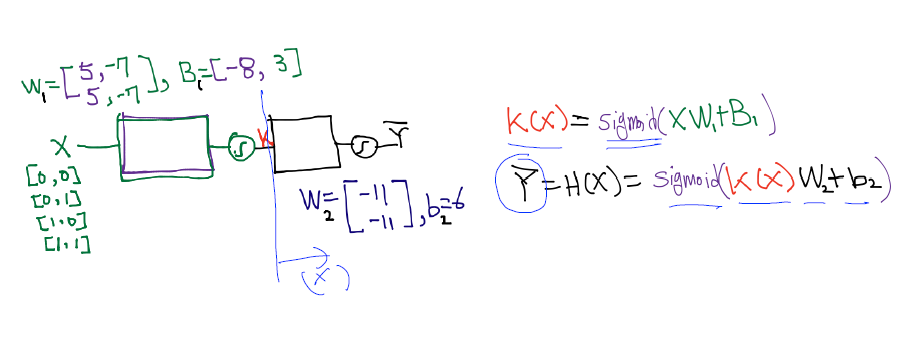 W₁=[5,-7
5,-7], B₁=[-8, 3]
X
K
Y̅
[0,0]
[0,1]
[1,0]
[1,1]
W₂=[-11
-11], b₂=6
(X)
K(X)=sigmoid(XW₁+B₁)
Y̅=H(X)=sigmoid(K(X)W₂+b₂)